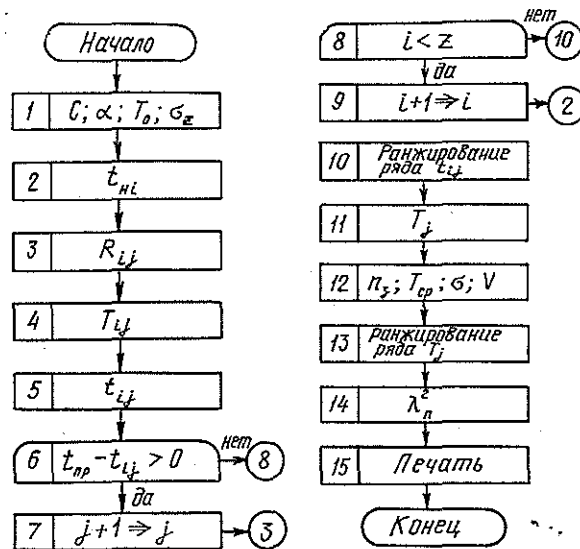 Начало
1 C; α; T₀; σ_z
2 t_нi
3 R_ij
4 T_ij
5 t_ij
6 t_пр - t_ij > 0 нет 8
да
7 j+1 ⇒ j 3
8 i < z нет 10
да
9 i+1 ⇒ i 2
10 Ранжирование
ряда t_ij
11 T_j
12 n_з; T_ср; σ; V
13 Ранжирование
ряда T_j
14 λ_п^г
15 Печать
Конец